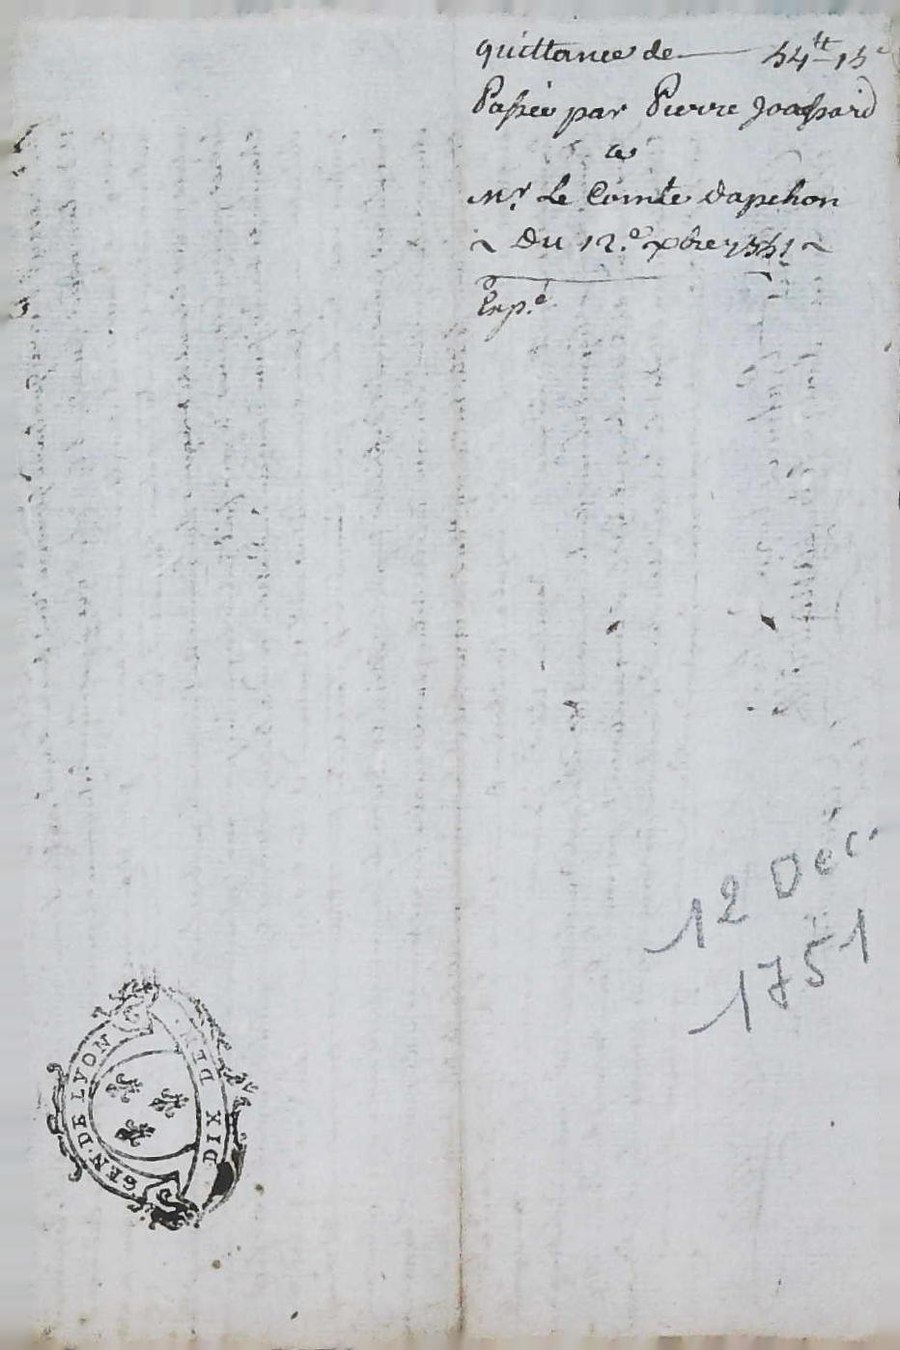 quittance de — 54ᵗᵗ 15ˢ
Passée par Pierre
a
Mr. Le Comte Dapchon
~ Du 12.e xbre 1751 ~
Exp.é
12 Déc.
1751
GEN·DE LYON
DIX DEN